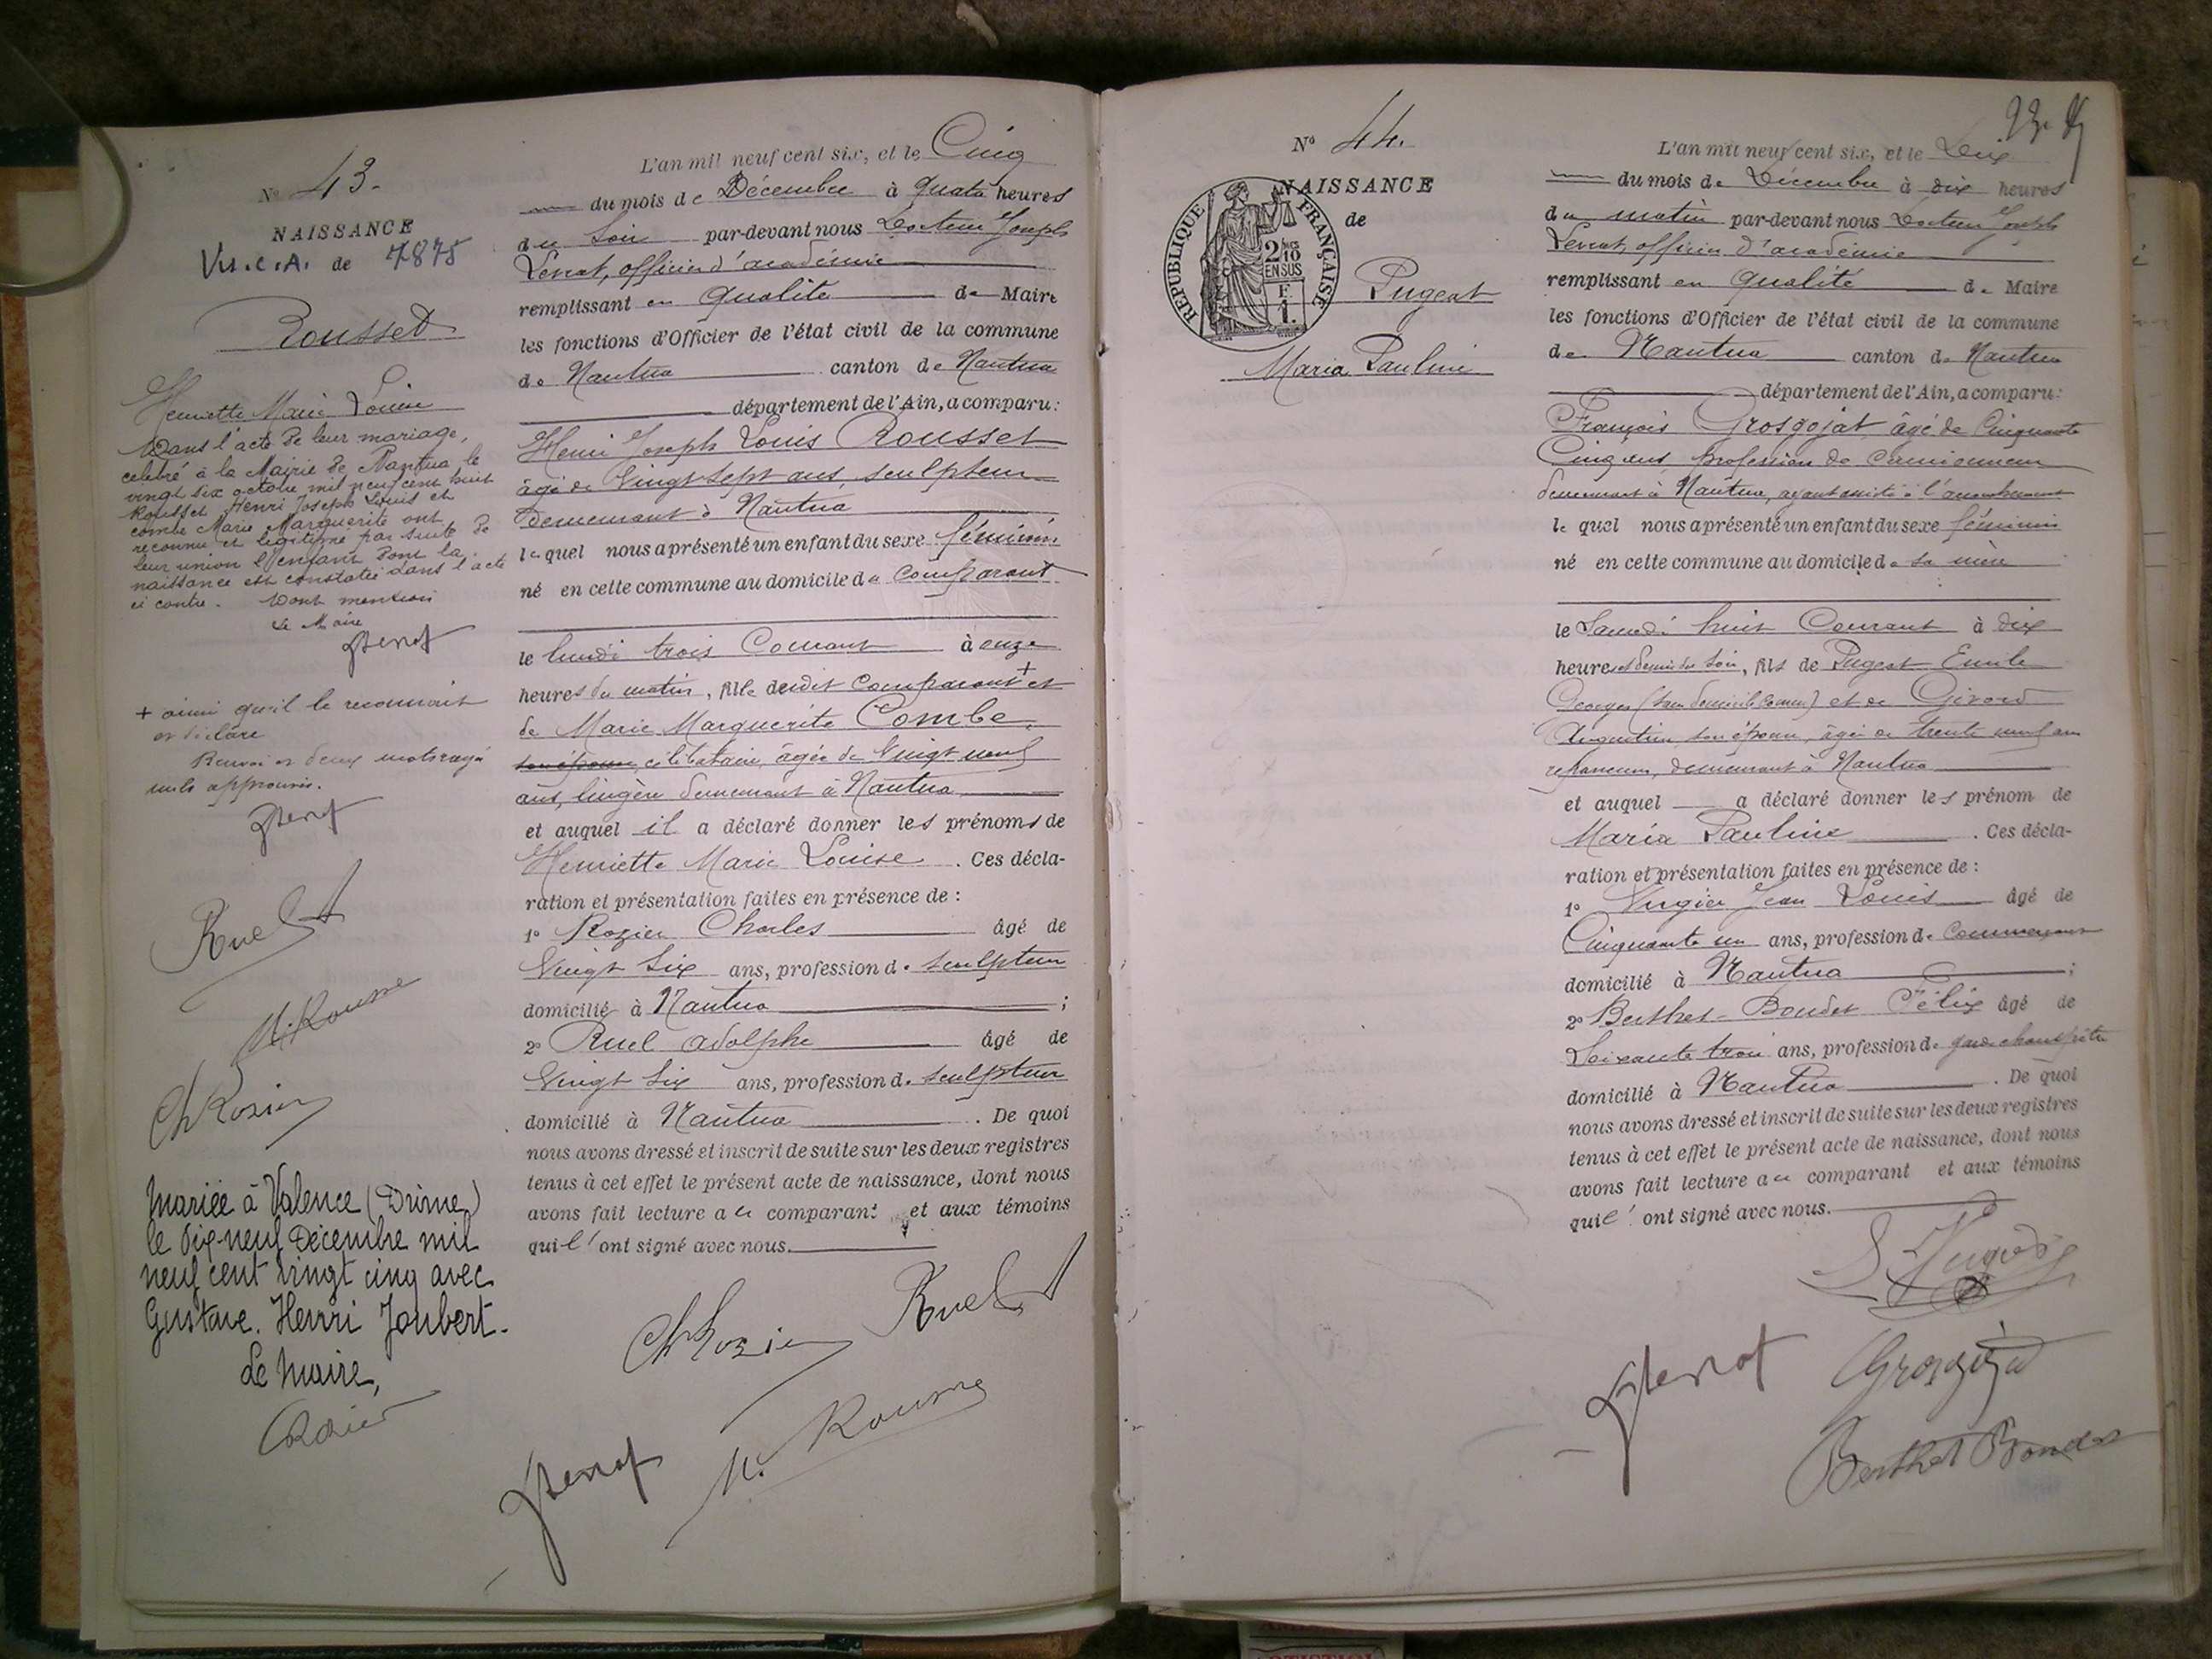 N° 43.
NAISSANCE
Vu.c.A. de 7875
Rousset
Henriette Marie Louise
Dans l'acte de leur mariage,
celebré à la Mairie de Nantua le
vingt six octobre mil neuf cent huit
Rousset Henri Joseph Louis et
Combe Marie Marguerite ont
reconnu et légitimé par suite de
leur union l'enfant dont la
naissance est constatée dans l'acte
ci contre. Dont mention
Le Maire
+ ainsi qu'il le reconnait
et déclare
Renvoi et deux mots rayés
nuls approuvés.
Ruel
H. Rousset
Ch Rozier
Mariée à Valence (Drôme)
le dix-neuf Décembre mil
neuf cent vingt cinq avec
Gustave. Henri Joubert.
Le Maire,
L'an mil neuf cent six, et le Cinq
du mois de Décembre à quatre heures
du Soir par-devant nous Docteur Joseph
officier d'académie
remplissant en qualité de Maire
les fonctions d'Officier de l'état civil de la commune
de Nantua canton de Nantua
département de l'Ain, a comparu:
Henri Joseph Louis Rousset
âgé de Vingt sept ans, sculpteur
demeurant à Nantua
lequel nous a présenté un enfant du sexe féminin
né en cette commune au domicile du comparant
le lundi trois Courant à onze
heures du matin, fille dudit comparant + et
de Marie Marguerite Combe,
son épouse, célibataire, âgée de Vingt neuf
ans, lingère demeurant à Nantua
et auquel il a déclaré donner les prénoms de
Henriette Marie Louise. Ces décla-
ration et présentation faites en présence de :
1° Rozier Charles âgé de
Vingt six ans, profession de sculpteur
domicilié à Nantua ;
2° Ruel Adolphe âgé de
Vingt six ans, profession de sculpteur
domicilié à Nantua. De quoi
nous avons dressé et inscrit de suite sur les deux registres
tenus à cet effet le présent acte de naissance, dont nous
avons fait lecture au comparant et aux témoins
qui l'ont signé avec nous.
Ch Rozier
Ruel
H. Rousset
N° 44.
NAISSANCE
de
RÉPUBLIQUE FRANÇAISE
2 10es
EN SUS
F.
1.
Pugeat
Maria Pauline
L'an mil neuf cent six, et le Dix
du mois de Décembre à dix heures
du matin par-devant nous Docteur Joseph
officier d'académie
remplissant en qualité de Maire
les fonctions d'Officier de l'état civil de la commune
de Nantua canton de Nantua
département de l'Ain, a comparu:
François Grosgojat âgé de Cinquante
Cinq ans, profession de camionneur
demeurant à Nantua, ayant assisté à l'accouchement
lequel nous a présenté un enfant du sexe féminin
né en cette commune au domicile de sa mère
le Samedi huit Courant à dix
heures et demie du soir, fils de Pugeat Emile
Georges (sans domicile connu) et de Girod
son épouse, âgée de trente neuf ans
repasseuse, demeurant à Nantua
et auquel a déclaré donner les prénom de
Maria Pauline. Ces décla-
ration et présentation faites en présence de :
1° Jean Louis âgé de
Cinquante un ans, profession de commerçant
domicilié à Nantua ;
2° Berthet-Bondet Félix âgé de
Soixante trois ans, profession de garde champêtre
domicilié à Nantua. De quoi
nous avons dressé et inscrit de suite sur les deux registres
tenus à cet effet le présent acte de naissance, dont nous
avons fait lecture au comparant et aux témoins
qui l'ont signé avec nous.
Berthet Bondet